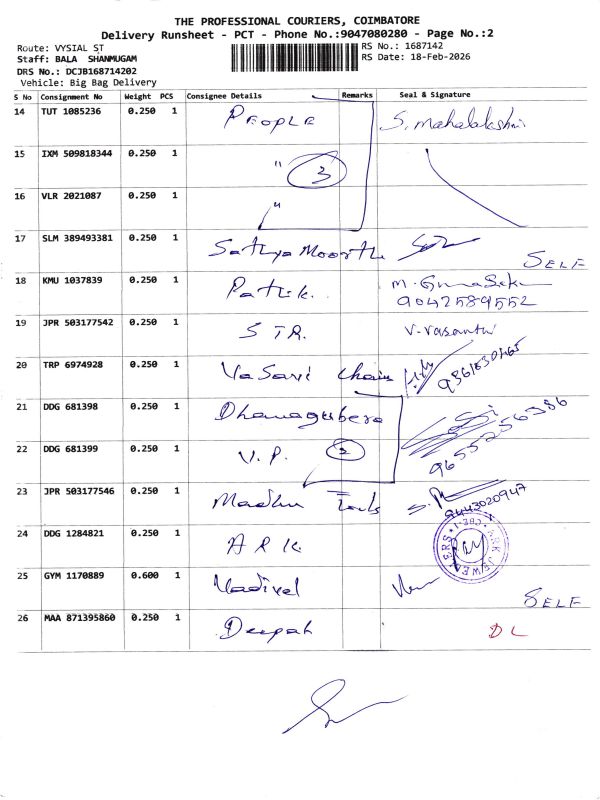 THE PROFESSIONAL COURIERS, COIMBATORE
Delivery Runsheet - PCT - Phone No.:9047080280 - Page No.:2
Route: VYSIAL ST
RS No.: 1687142
Staff: BALA SHANMUGAM
RS Date: 18-Feb-2026
DRS No.: DCJB168714202
Vehicle: Big Bag Delivery
S No Consignment No Weight PCS Consignee Details Remarks Seal & Signature
14 TUT 1085236 0.250 1 PEOPLE S. Mahalakshmi
15 IXM 509818344 0.250 1 " 3
16 VLR 2021087 0.250 1 "
17 SLM 389493381 0.250 1 Sathya Moorthi SELF
18 KMU 1037839 0.250 1 Pathik. M. GunaSek
9042589552
19 JPR 503177542 0.250 1 STR. V. Vasanthi
20 TRP 6974928 0.250 1 VaSavi Chains
21 DDG 681398 0.250 1 Dhanagubera
22 DDG 681399 0.250 1 V.P. 2 9655256386
23 JPR 503177546 0.250 1 Madhu 9443020947
24 DDG 1284821 0.250 1 A R K ARK JEWELLERS CBE-1
25 GYM 1170889 0.600 1 Vadivel SELF
26 MAA 871395860 0.250 1 Deepak DL